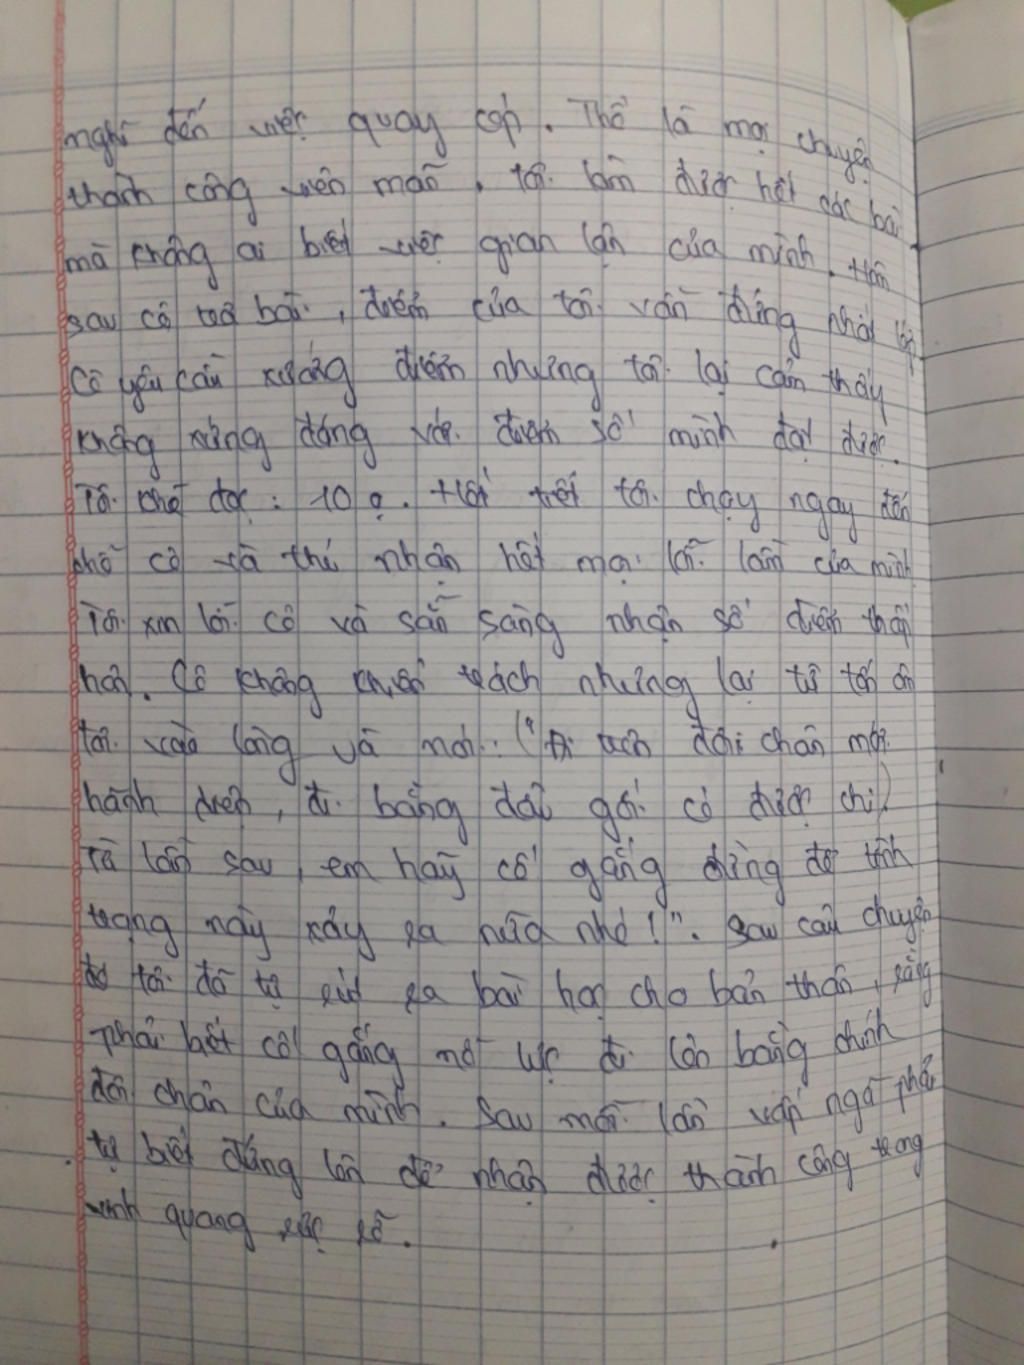 nghĩ đến việc quay cóp. Thế là mọi chuyện
thành công viên mãn, tôi làm được hết các bài
mà không ai biết việc gian lận của mình. Hôm
sau cô trả bài, điểm của tôi vẫn đứng nhất lớp
Cô yêu cầu xướng điểm nhưng tôi lại cảm thấy
không xứng đáng với điểm số mình đạt được.
Tôi chợt đọc: 10 ạ. Hết tiết tôi chạy ngay đến
chỗ cô và thú nhận hết mọi lỗi lầm của mình
Tôi xin lỗi cô và sẵn sàng nhận số điểm thấp
hơn. Cô không khiển trách nhưng lại từ tốn ôm
tôi vào lòng và nói: ("Đi trên đôi chân mới
hãnh diện, đi bằng đầu gối có được chi)
Và lần sau, em hãy cố gắng đừng để tình
trạng này xảy ra nữa nhé!". Sau câu chuyện
đó tôi đã tự rút ra bài học cho bản thân, rằng
phải biết cố gắng nỗ lực đi lên bằng chính
đôi chân của mình. Sau mỗi lần vấp ngã phải
tự biết đứng lên để nhận được thành công trong
vinh quang rực rỡ.